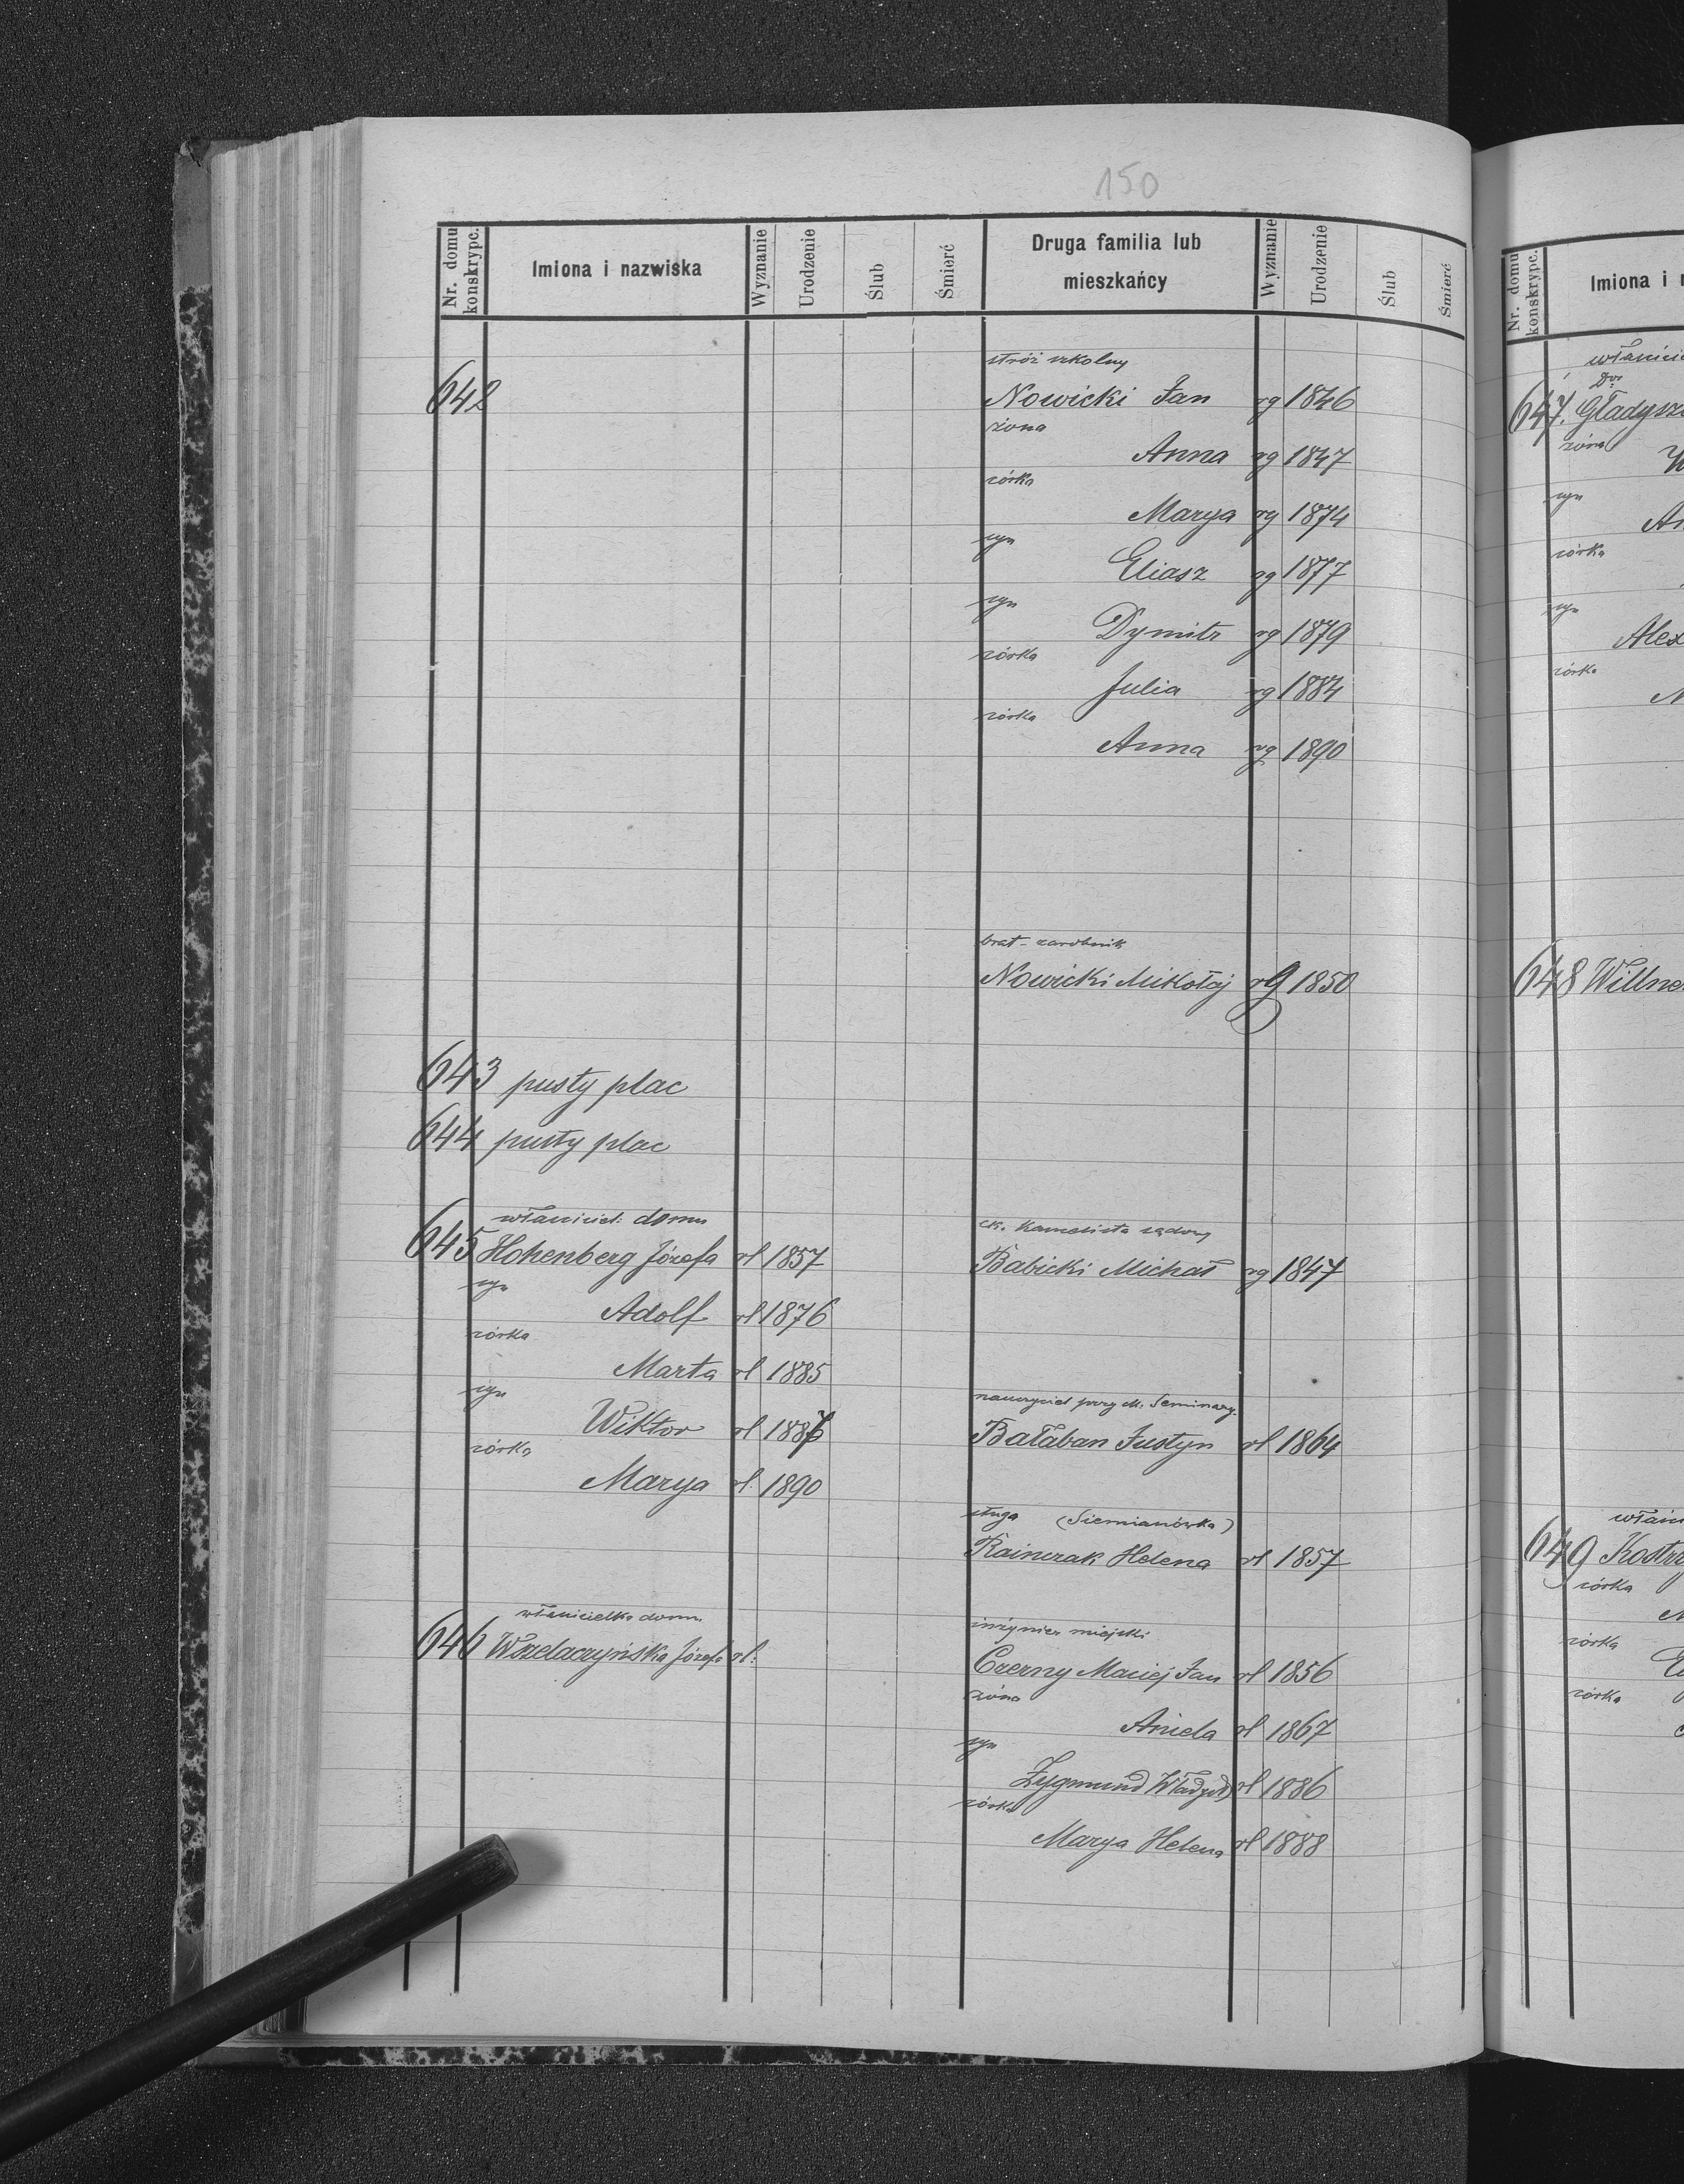 150
Nr. domu konskrypc.
Imiona i nazwiska
Wyznanie
Urodzenie
Ślub
Śmierć
Druga familia lub
mieszkańcy
Wyznanie
Urodzenie
Ślub
Śmierć
stróż szkolny
642 Nowicki Jan rg 1846
żona
Anna rg 1847
córka
Marya rg 1874
syn
Eliasz rg 1877
syn
Dymitr rg 1879
córka
Julia rg 1884
córka
Anna rg 1890
brat - zarobnik
Nowicki Mikołaj rg 1850
643 pusty plac
644 pusty plac
właściciel: domu
645 Hohenberg Józefa rl 1857
syn
Adolf rl 1876
córka
Marta rl 1885
syn
Wiktor rl
córka
Marya rl 1890
ck. kancelista sądowy
Babicki Michał rg 1847
nauczyciel przy M. Seminary.
Bałaban Justyn rl 1864
sługa (Siemianówka)
Helena rl 1857
właścicielka domu
646 Wszelaczyńska Józefa rl.
inżynier miejski
Czerny Maciej Jan rl 1856
żona
Aniela rl 1867
syn
Zygmund Władysł rl 1886
córka
Marya Helena rl 1888
Nr. domu konskrypc.
Imiona i
647. Gładysz
żona
syn
córka
syn
Alex
córka
648 Willne
649 Kostrz
córka
córka
córka